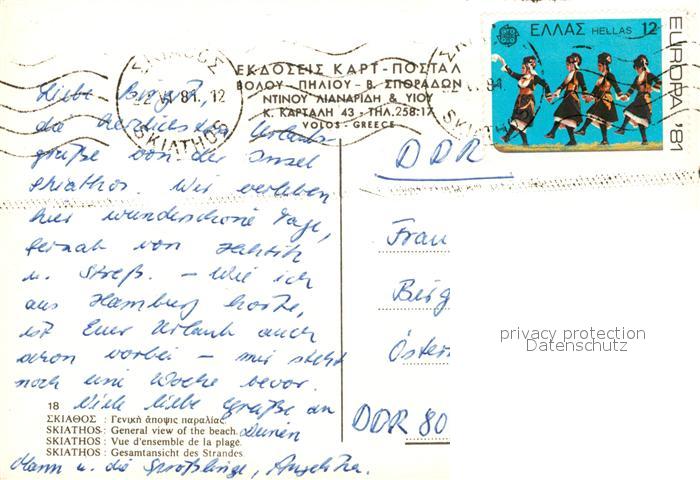 ΕΛΛΑΣ HELLAS 12
EUROPA '81
ΣΚΙΑΘΟΣ
81. 12
SKIATHOS
ΕΚΔΟΣΕΙΣ ΚΑΡΤ-ΠΟΣΤΑΛ
ΒΟΛΟΥ - ΠΗΛΙΟΥ - Β. ΣΠΟΡΑΔΩΝ
ΝΤΙΝΟΥ ΛΙΑΝΑΡΙΔΗ & ΥΙΟΥ
Κ. ΚΑΡΤΑΛΗ 43 - ΤΗΛ. 258.17
VOLOS - GREECE
Liebe Birgit,
die herzlichsten Urlaubs-
grüße von der Insel
Skiathos. Wir verleben
hier wunderschöne Tage,
fernab von Hektik
u. Streß. - Wie ich
aus Hamburg hörte,
ist Euer Urlaub auch
schon vorbei - mir steht
noch eine Woche bevor.
Viele liebe Grüße an
Deinen
Mann u. die Sprößlinge, Angelika.
DDR
Frau
Birg
Öster
DDR 80
privacy protection
Datenschutz
18
ΣΚΙΑΘΟΣ : Γενική άποψις παραλίας.
SKIATHOS : General view of the beach.
SKIATHOS : Vue d'ensemble de la plage.
SKIATHOS : Gesamtansicht des Strandes.